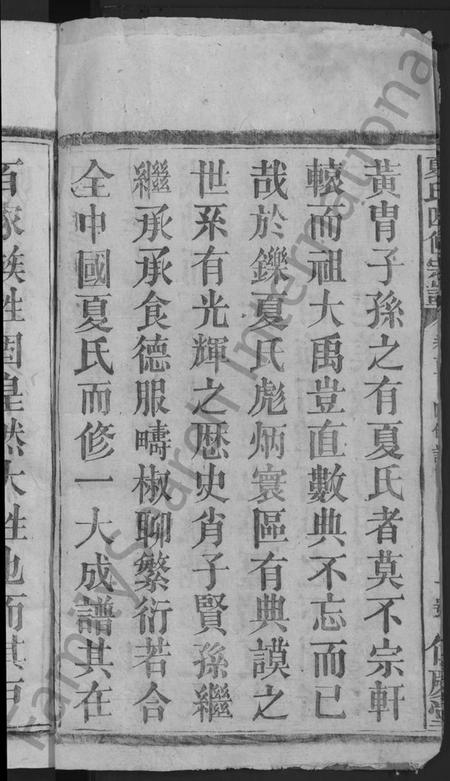 黃胄子孫之有夏氏者莫不宗軒
轅而祖大禹豈直數典不忘而已
哉於鑠夏氏彪炳寰區有典謨之
世系有光輝之歷史肖子賢孫繼
繼承承食德服疇椒聊繁衍若合
全中國夏氏而修一大成譜其在
百家族姓固皇然大姓也而其
FamilySearch International